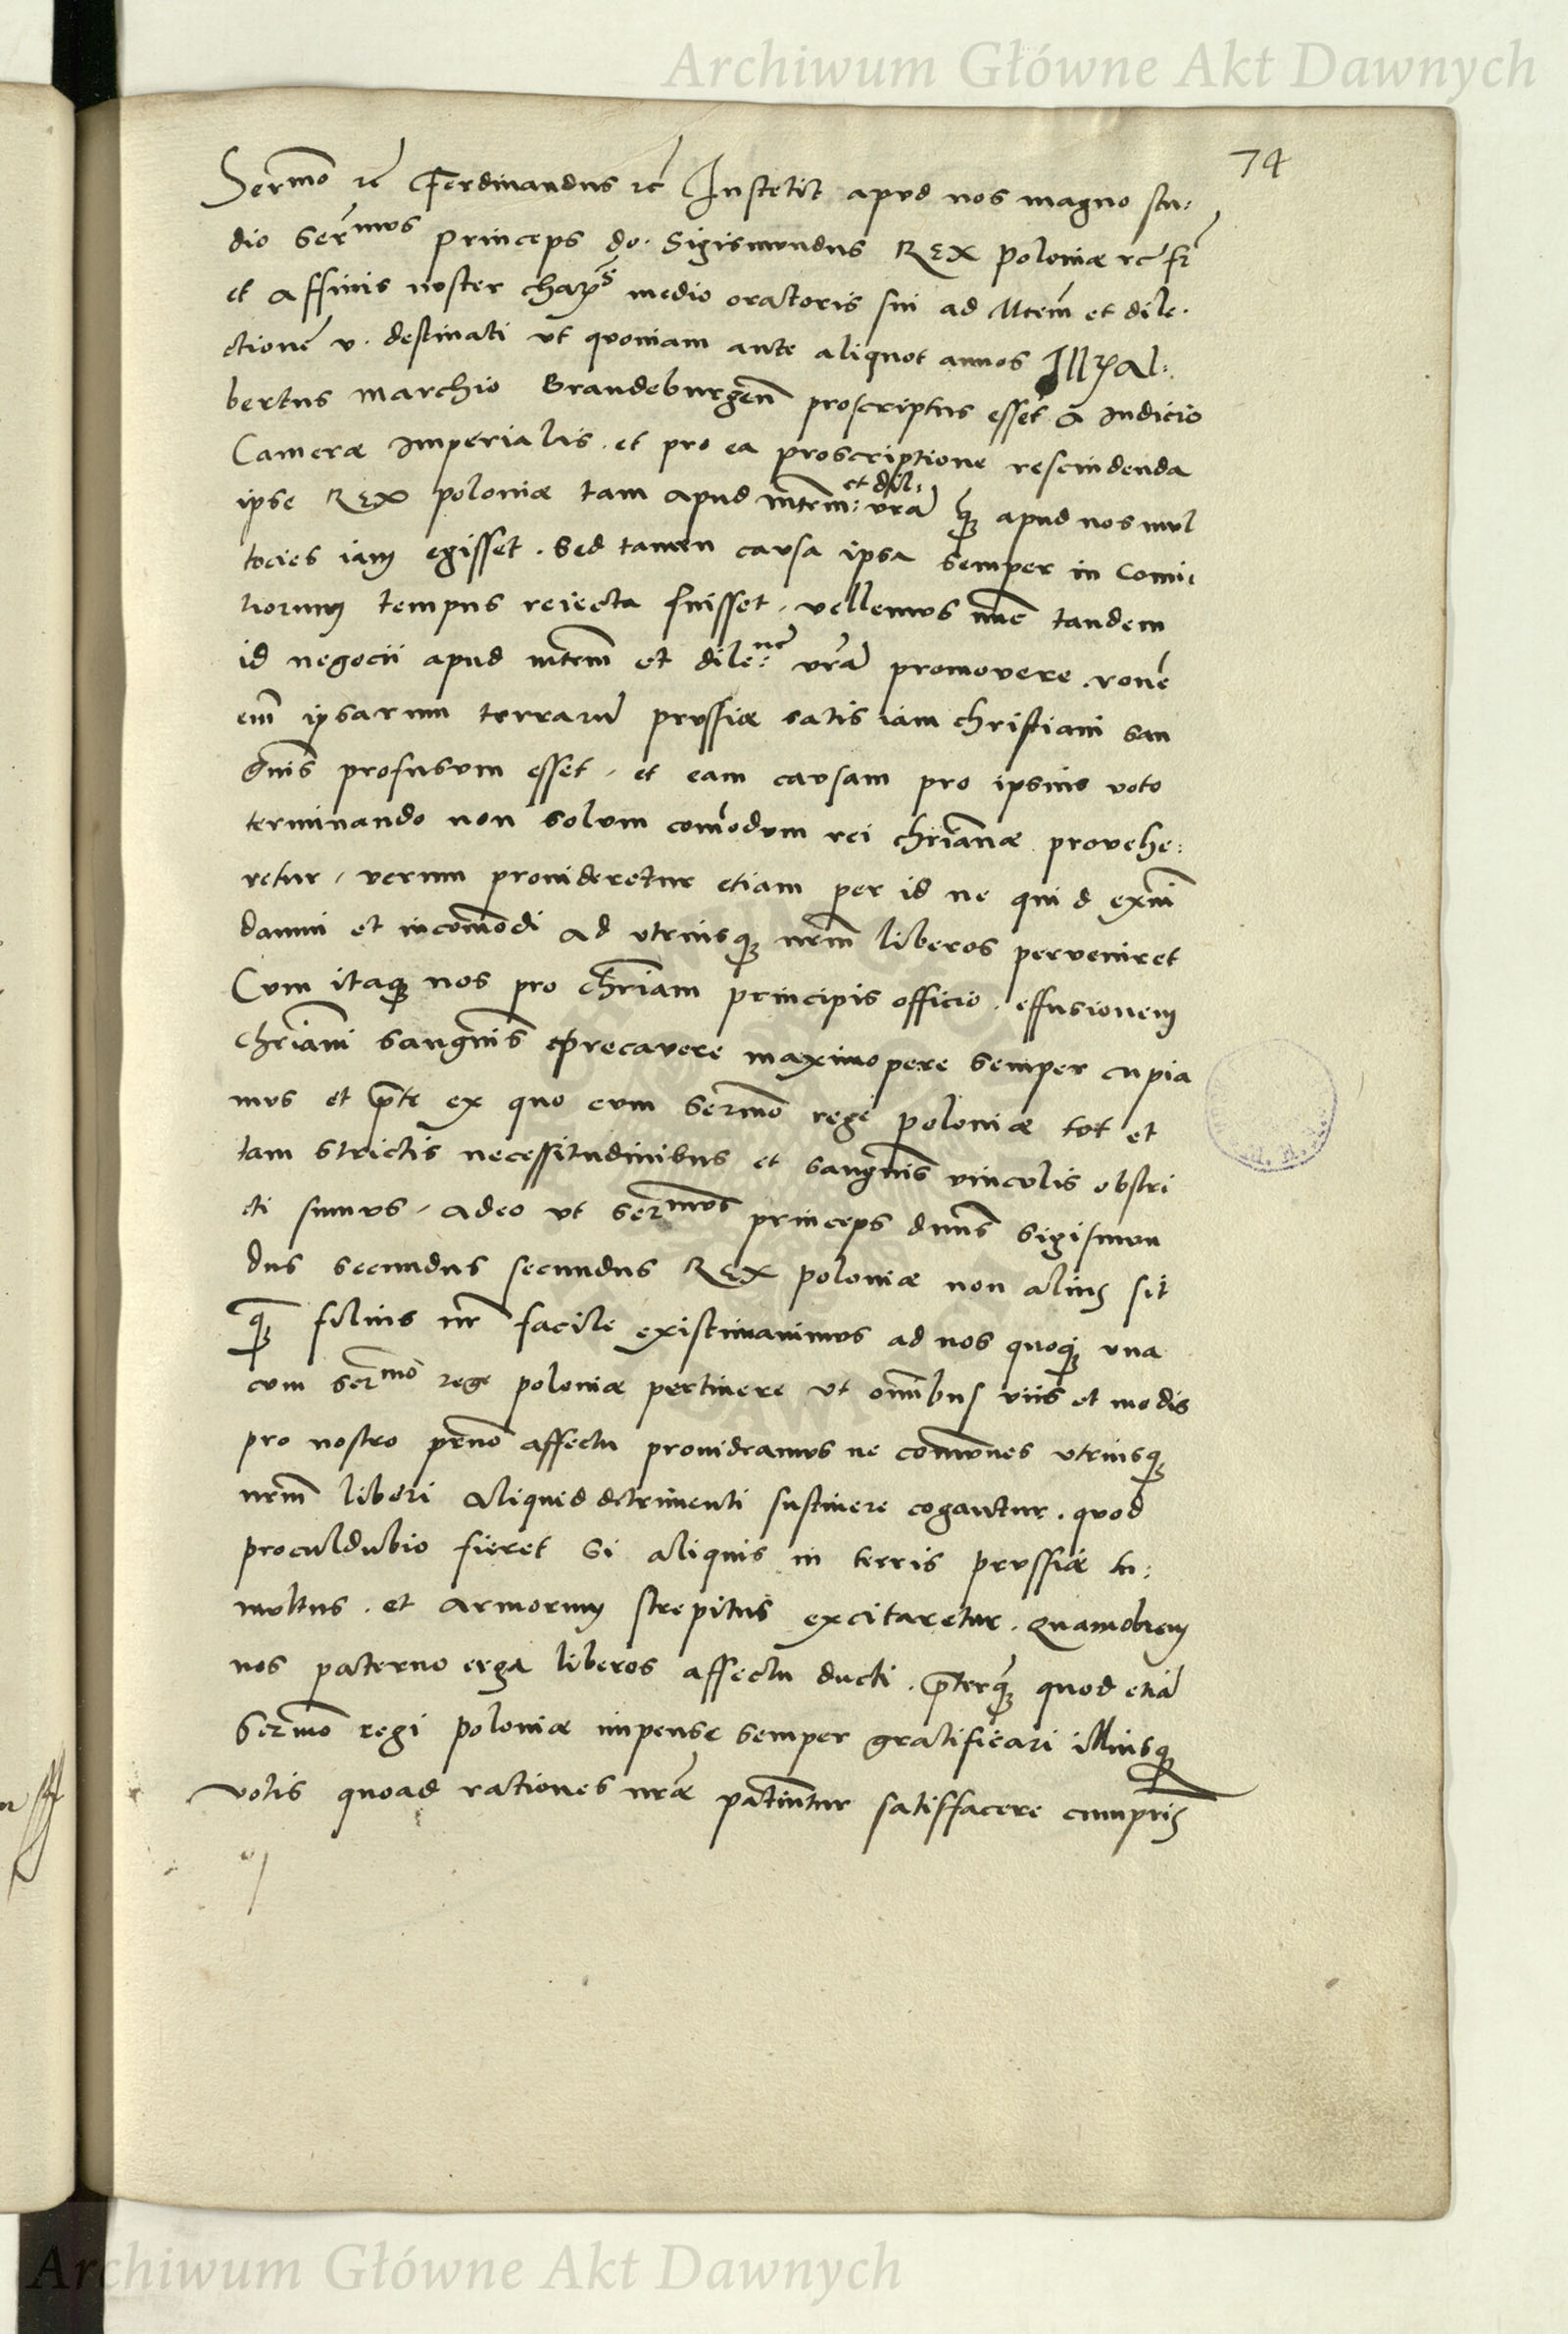 Archiwum Główne Akt Dawnych
74
Sermo rc̃ Ferdinandus rc̃ Institit apud nos magno stu:
dio Ser̃mus Princeps do. Sigismundus REX Poloniæ rc̃ fr̃
et Affinis noster charꝰˢ medio oratoris sui ad Mtem̃ et dile:
ctionẽ v. destinati ut quoniam ante aliquot annos Ill Al:
bertus Marchio Brandeburgeñ proscriptus esset a Iudicio
Cameræ Imperialis. et pro ea proscriptione rescindenda
ipse REX poloniæ tam apud mtem̃: et dil: vrã q̃ꝫ apud nos mul
tocies iam egisset. Sed tamen causa ipsa semper in Comi:
tiorum tempus reiecta fuisset, vellemus nũc tandem
id negocii apud mtem̃ et dile:nẽ vrã promovere. ronẽ
em̃ ipsarum terrarũ prussiæ satis iam christiani san
guĩs profusum esset, et eam causam pro ipsius voto
terminando non solum com̃odum rei chr̃ianæ provehe:
retur, verum provideretur etiam per id ne quid exim̃
damni et incom̃odi ad utriusqꝫ nr̃m liberos perveniret
Cum itaqꝫ nos pro chr̃iani principis officio. effusionem
chr̃iani sanguĩs precavere maximopere semper cupia
mus et p̃te ex quo cum Ser̃mo rege poloniæ tot et
tam strictis necessitudinibus et sanguĩs vinculis obstri
cti sumus, adeo ut ser̃mus princeps dnũs Sigismun
dus secundus secundus REX poloniæ non alius sit
q̃ꝫ filius nr̃ facile existimavimus ad nos quoqꝫ una
cum ser̃mo rege poloniæ pertinere ut om̃ibus viis et modis
pro nostro pr̃no affectu provideamus ne comũnes utriusqꝫ
nr̃m liberi aliquid detrimenti sustinere cogantur. quod
proculdubio fieret si aliquis in terris prussiæ tu:
multus. et armorum strepitus excitaretur. Quamobrem
nos paterno erga liberos affectu ducti. p̃terq̃ꝫ quod etiã
Ser̃mo regi poloniæ impense semper gratificari illiusqꝫ
votis quoad rationes nr̃æ patiũtur satisfacere cumpris
Archiwum Główne Akt Dawnych